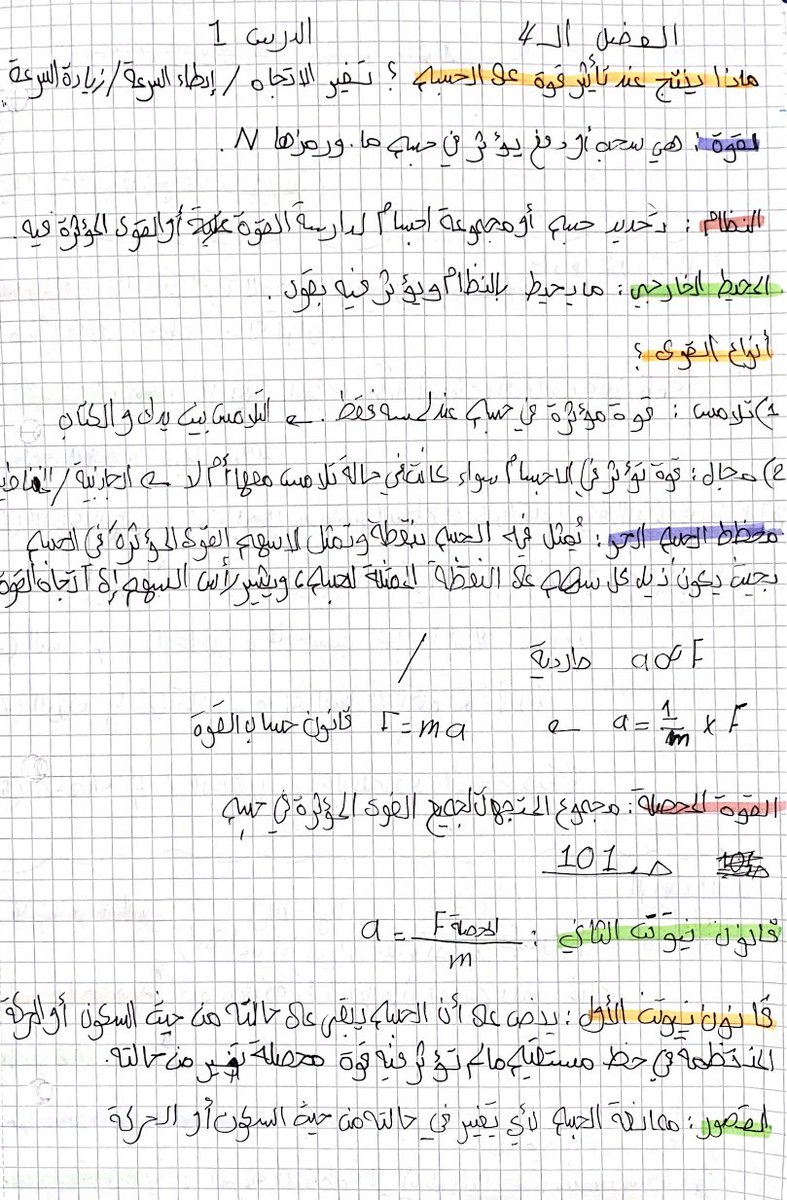 الفصل الـ4 الدرس 1
ماذا ينتج عند تأثير قوة على الجسم ؟ تغير الاتجاه / إبطاء السرعة / زيادة السرعة
القوة : هي سحب أو دفع يؤثر في جسم ما. ورمزها N .
النظام : تحديد جسم أو مجموعة اجسام لدارسة القوة أو القوى المؤثرة فيه .
المحيط الخارجي : ما يحيط بالنظام ويؤثر فيه بقوة .
أنواع القوى ؟
1) تلامس : قوة مؤثرة في جسم عند لمسه فقط . ← التلامس بين يدك والكتاب
2) مجال : قوة تؤثر في الاجسام سواء كانت في حالة تلامس معها أم لا ← الجاذبية /
مخطط الجسم الحر : يُمثل فيه الجسم بنقطة وتمثل الاسهم القوى المؤثرة في الجسم
بحيث يكون ذيل كل سهم على النقطة الممثلة للجسم، ويشير رأس السهم إلى اتجاه القوة
a ∝ F طردية /
a = 1/m × F ← F = ma قانون حساب القوة
القوة المحصلة : مجموع المتجهات لجميع القوى المؤثرة في جسم
ص 101
قانون نيوتن الثاني : a = F المحصلة / m
قانون نيوتن الأول : ينص على أن الجسم يبقى على حالته من حيث السكون أو الحركة
المنتظمة في خط مستقيم مالم تؤثر فيه قوة محصلة تغير من حالته.
القصور : ممانعة الجسم لأي تغير في حالته من حيث السكون أو الحركة